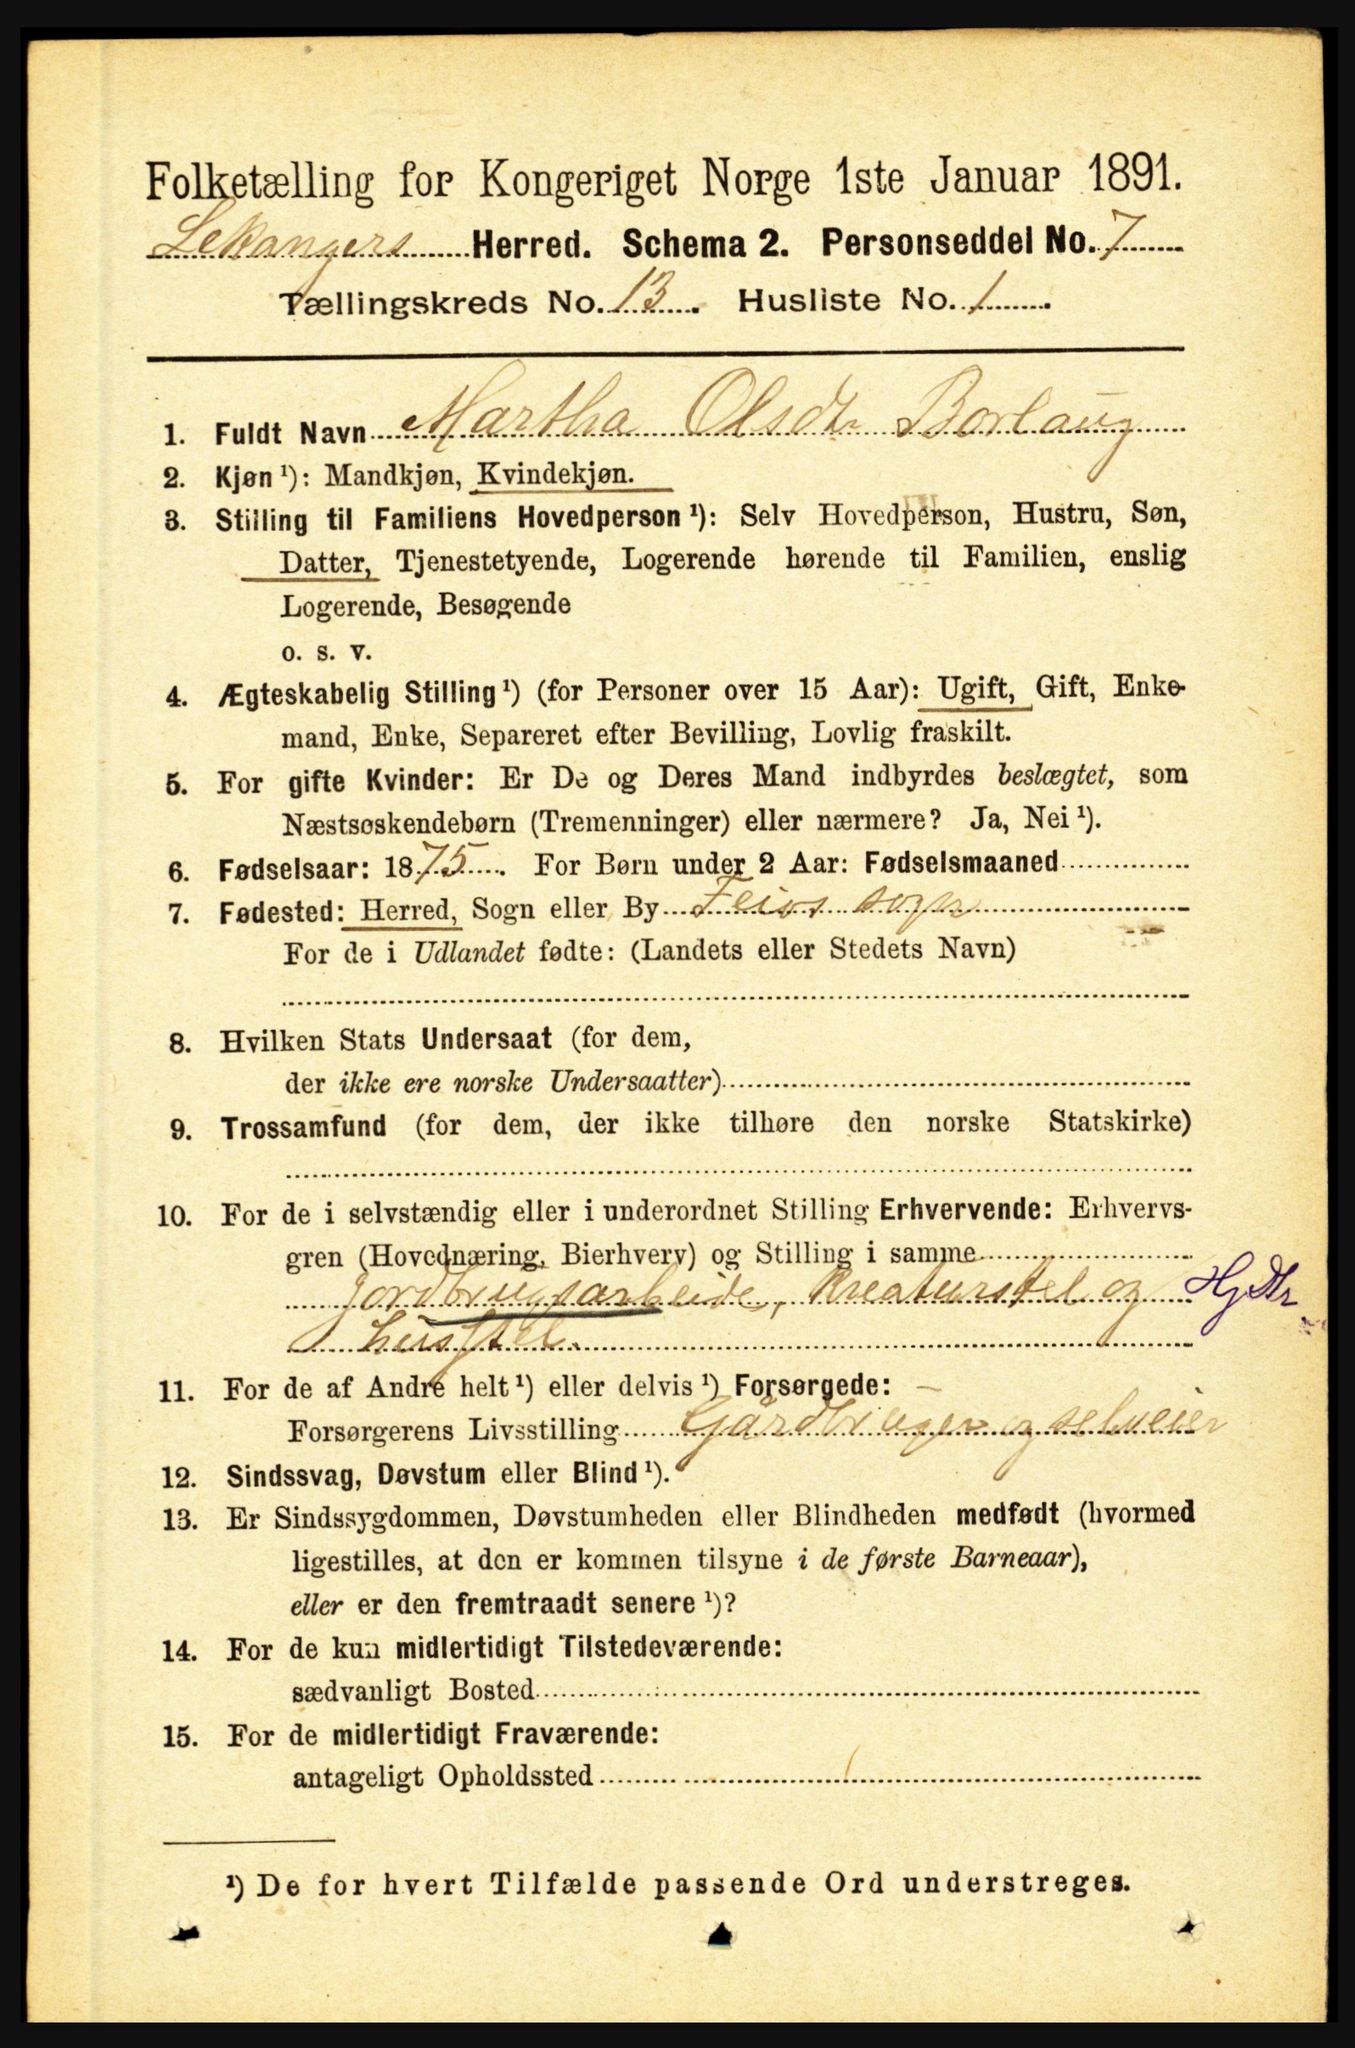 Folketælling for Kongeriget Norge 1ste Januar 1891.
Lekangers Herred. Schema 2. Personseddel No. 7
Tællingskreds No. 13. Husliste No. 1.
1. Fuldt Navn Martha Olsdtr Borlaug
2. Kjøn ¹): Mandkjøn, Kvindekjøn.
3. Stilling til Familiens Hovedperson ¹): Selv Hovedperson, Hustru, Søn,
Datter, Tjenestetyende, Logerende hørende til Familien, enslig
Logerende, Besøgende
o. s. v.
4. Ægteskabelig Stilling ¹) (for Personer over 15 Aar): Ugift, Gift, Enke-
mand, Enke, Separeret efter Bevilling, Lovlig fraskilt.
5. For gifte Kvinder: Er De og Deres Mand indbyrdes beslægtet, som
Næstsøskendebørn (Tremenninger) eller nærmere? Ja, Nei ¹).
6. Fødselsaar: 1875. For Børn under 2 Aar: Fødselsmaaned
7. Fødested: Herred, Sogn eller By Feios sogn
For de i Udlandet fødte: (Landets eller Stedets Navn)
8. Hvilken Stats Undersaat (for dem,
der ikke ere norske Undersaatter)
9. Trossamfund (for dem, der ikke tilhøre den norske Statskirke)
10. For de i selvstændig eller i underordnet Stilling Erhvervende: Erhvervs-
gren (Hovednæring, Bierhverv) og Stilling i samme
jordbrugsarbeide, kreaturstel og Hj. Dtr
husstel.
11. For de af Andre helt ¹) eller delvis ¹) Forsørgede: –
Forsørgerens Livsstilling Gårdbruger og selveier
12. Sindssvag, Døvstum eller Blind ¹).
13. Er Sindssygdommen, Døvstumheden eller Blindheden medfødt (hvormed
ligestilles, at den er kommen tilsyne i de første Barneaar),
eller er den fremtraadt senere ¹)?
14. For de kun midlertidigt Tilstedeværende:
sædvanligt Bosted
15. For de midlertidigt Fraværende:
antageligt Opholdssted
¹) De for hvert Tilfælde passende Ord understreges.